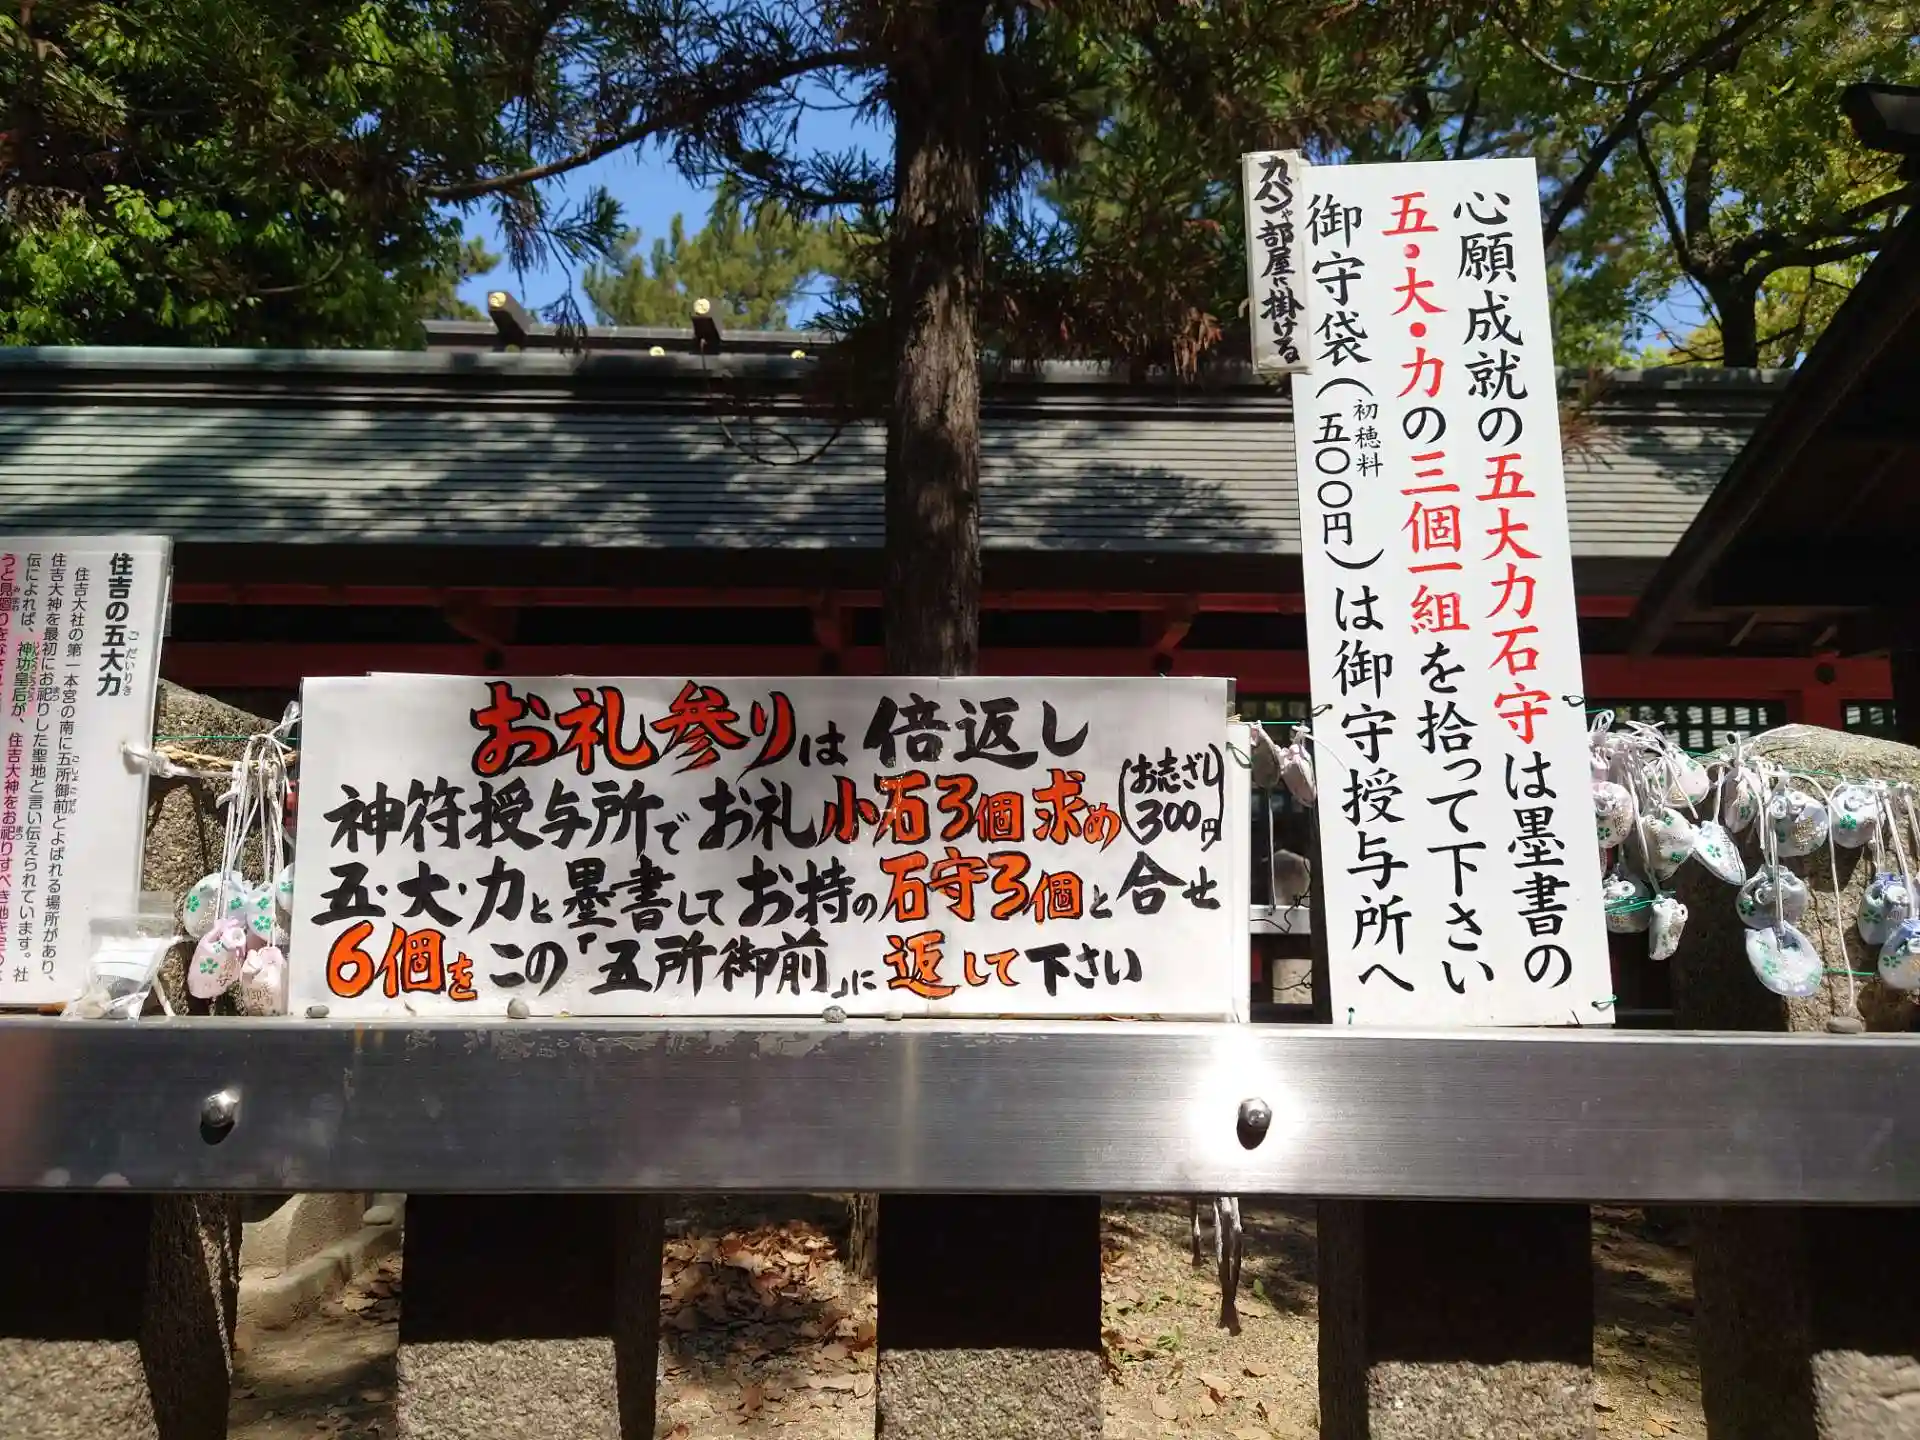 心願成就の五大力石守は墨書の
五・大・力の三個一組を拾って下さい
御守袋(初穂料五〇〇円)は御守授与所へ
カバンや部屋に掛ける
お礼参りは倍返し
神符授与所でお礼小石3個求め(お志ざし300円)
五・大・力と墨書してお持の石守3個と合せ
6個をこの「五所御前」に返して下さい
住吉の五大力
ごだいりき
住吉大社の第一本宮の南に五所御前とよばれる場所があり、
住吉大神を最初にお祀りした聖地と言い伝えられています。社
伝によれば、神功皇后が、住吉大神をお祀りすべき地を定め